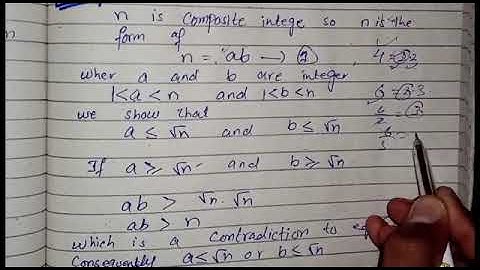 n is composite intege so n is the
form of
n = ab → ②
4 = 2·2
wher a and b are integer
1<a<n and 1<b<n
6 = 2·3
we show that
6/2 = 3
a ≤ √n and b ≤ √n
6/3 =
If a ≥ √n and b ≥ √n
ab > √n·√n
ab > n
which is a contradiction to
Consequently a≤√n or b≤√n